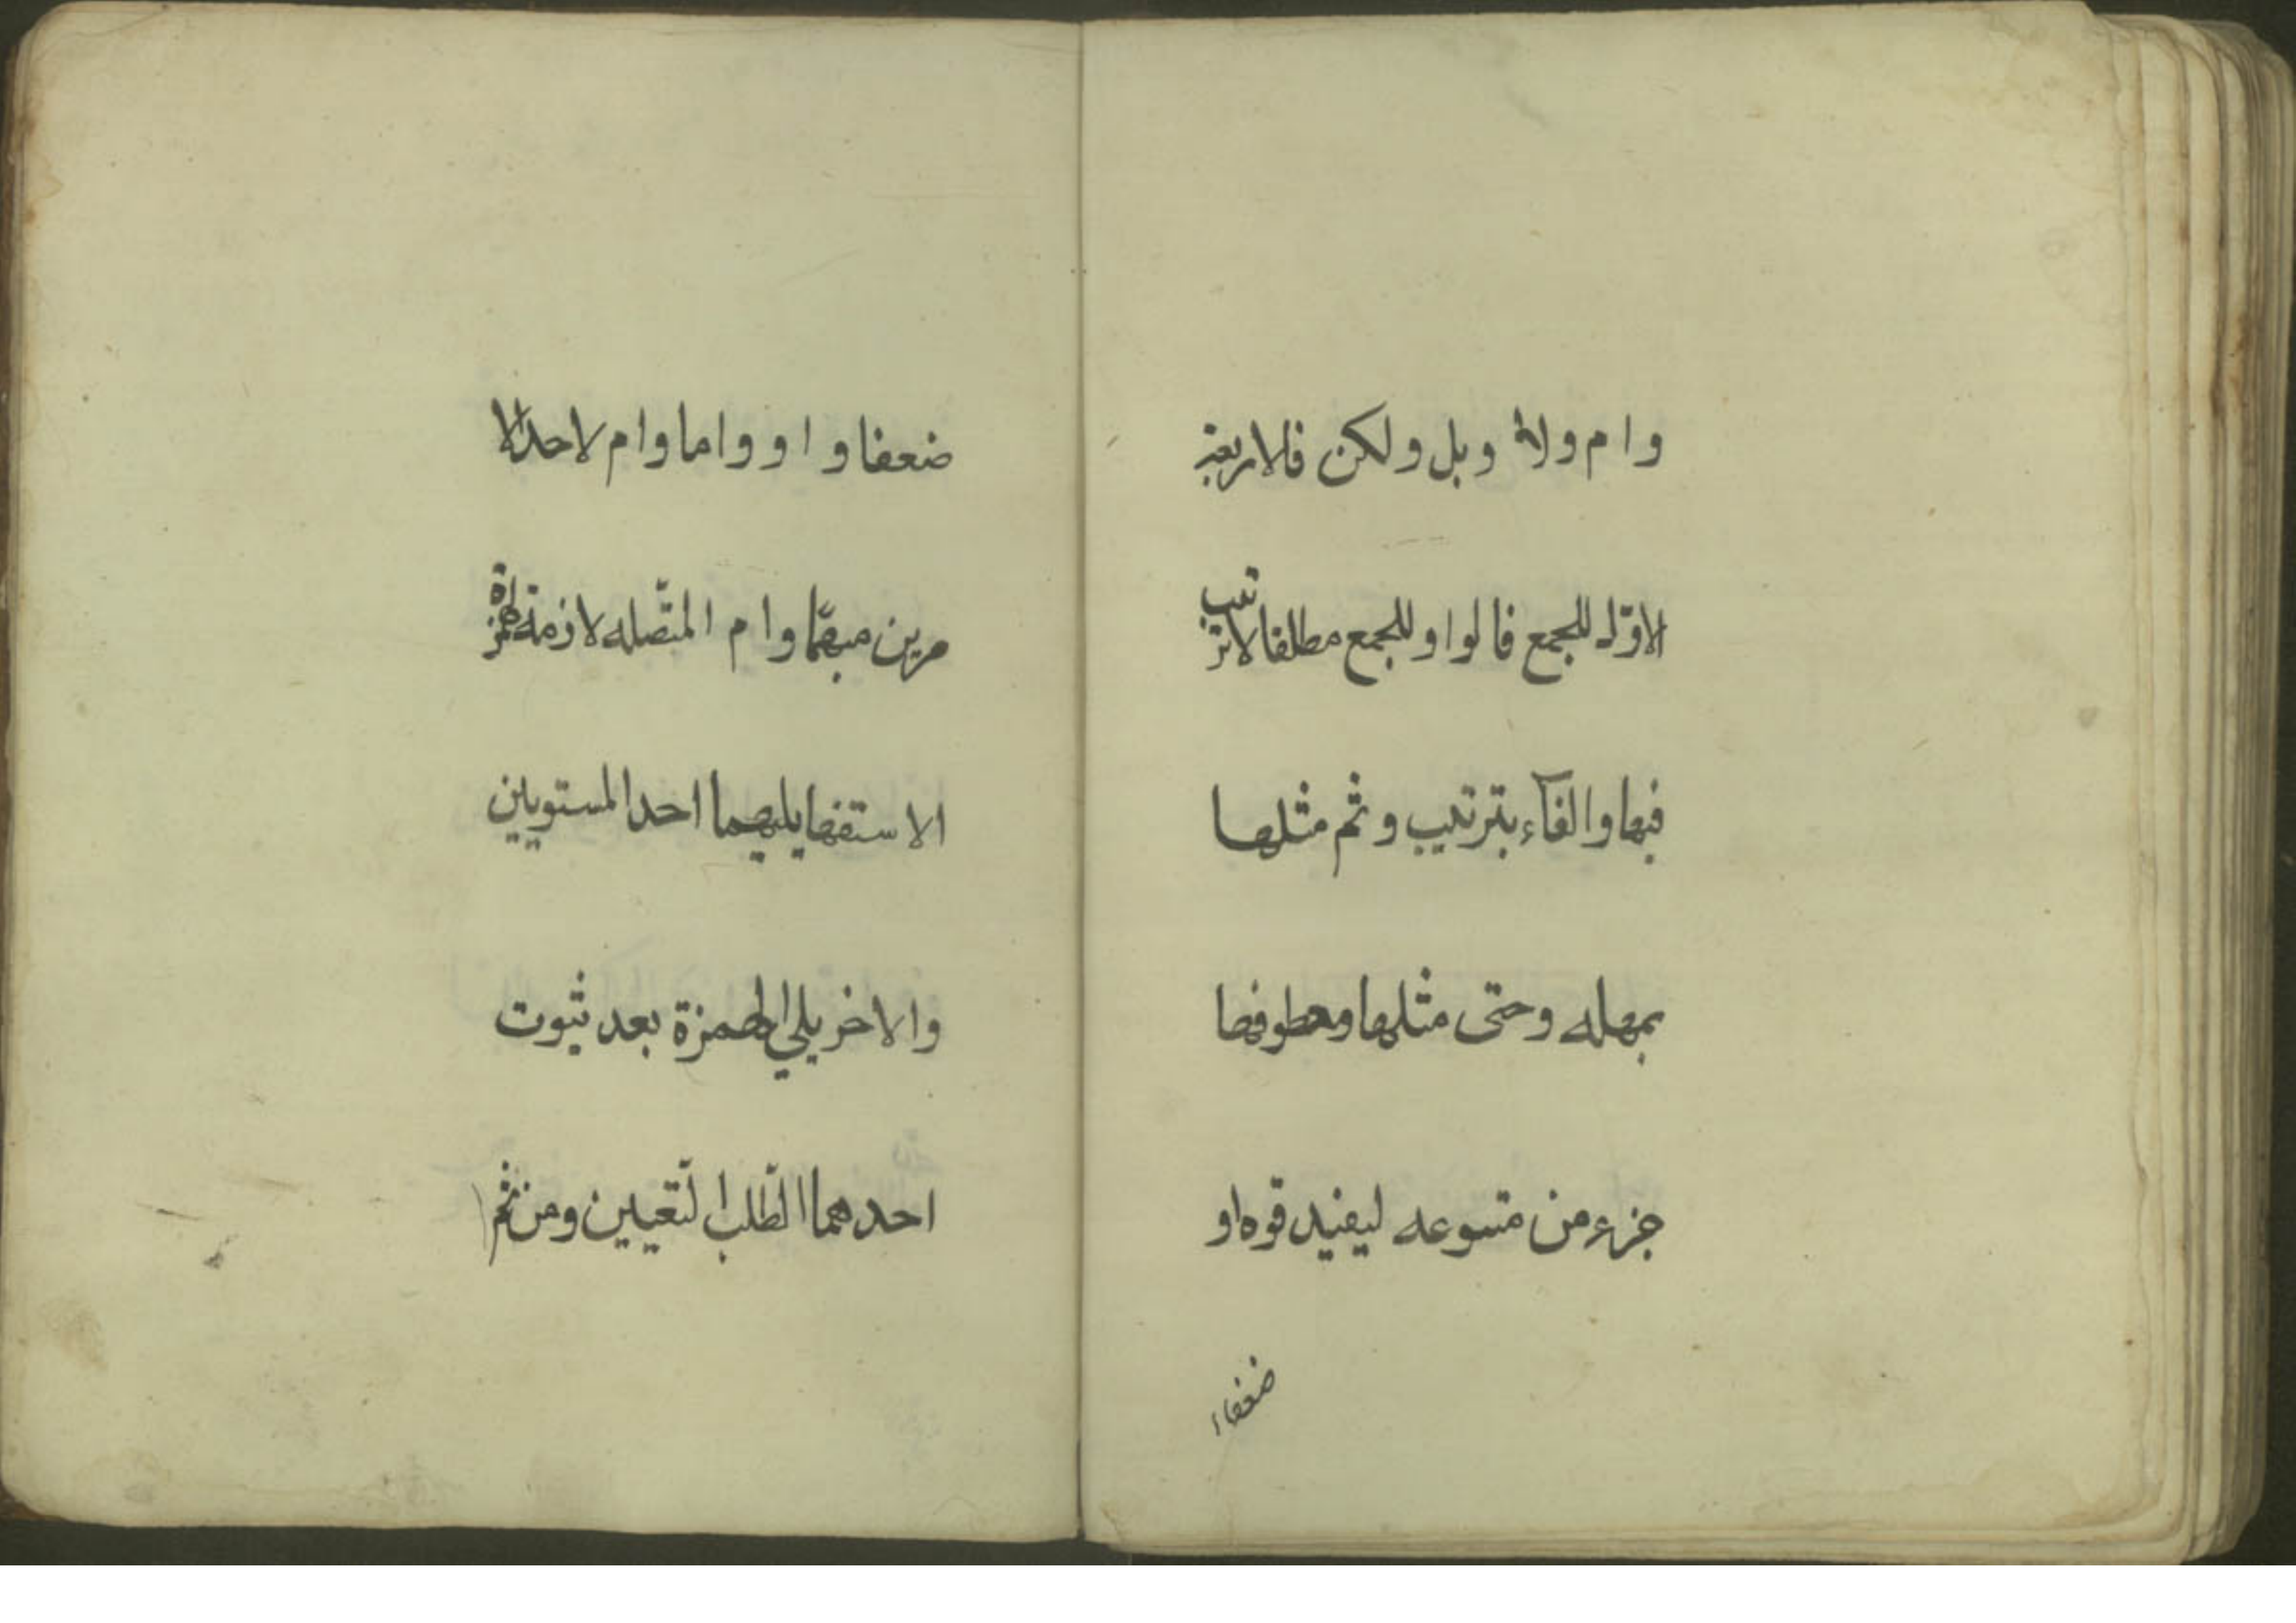 وام ولا وبل ولكن فالاربعة
الاوّل للجمع فالواو للجمع مطلقا لا ترتيب
فيها والفآء بترتيب وثم مثلها
بمهله وحتى مثلها ومعطوفها
جزء من متبوعه ليفيد قوه او
ضعفاء
ضعفا و او واما وام لاحد الا
مرين مبهمًا وام المتّصله لازمة لهمزة
الاستفها يليهما احد المستويين
والاخر يلي الهمزة بعد ثبوت
احدهما الطّلب التّعيين ومن ثم